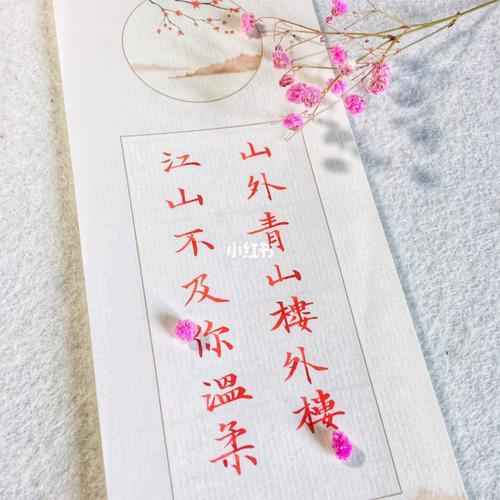 山外青山樓外樓
江山不及你溫柔
小红书